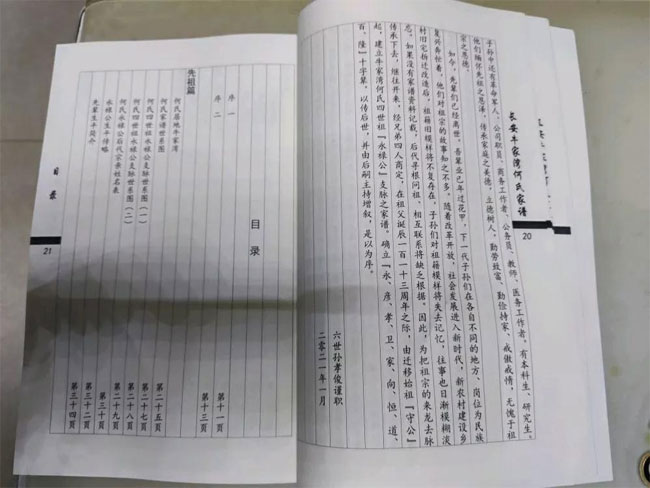 长安牛家湾何氏家谱
20
子孙中还有革命军人、公司职员、商务工作者、公务员、教师、医务工作者，有本科生、研究生。
他们缅怀先祖之恩泽，传承家庭之美德，立德树人，勤劳致富、勤俭持家、戒傲戒惰，无愧于祖
宗之恩德。
如今，先辈们已经离世，吾辈业已年过花甲，下一代子孙们在各自不同的地方、岗位为民族
复兴奔忙着，他们对祖宗的故事知之不多，随着改革开放，社会发展进入新时代，新农村建设乡
村旧宅拆迁改造后，祖籍旧模样将不复存在，子孙们对祖籍模样将失去记忆，往事也日渐模糊淡
忘。如果没有家谱资料记载，后代寻根问祖、相互联系将缺乏根据。因此，为把祖宗的来龙去脉
传承下去，继往开来，经兄弟四人商定，在祖父诞辰一百一十三周年之际，由迁移始祖“守公”
起，建立牛家湾何氏四世祖“永禄公”支脉之家谱，确立“永、彦、孝、卫、家、向、恒、道、
百、隆”十字辈，以传后世，并由后嗣主持增叙，是以为序。
六世孙孝俊谨职
二零二一年一月
目录
序一 第十一页
序二 第十三页
先祖篇
何氏居地牛家湾 第二十五页
何氏家谱世系图 第二十七页
何氏四世祖永禄公支脉世系图（一） 第二十八页
何氏四世祖永禄公支脉世系图（二） 第二十九页
何氏永禄公后代宗亲姓名表 第三十页
永禄公生平传略 第三十二页
先辈生平简介 第三十四页
目录
21